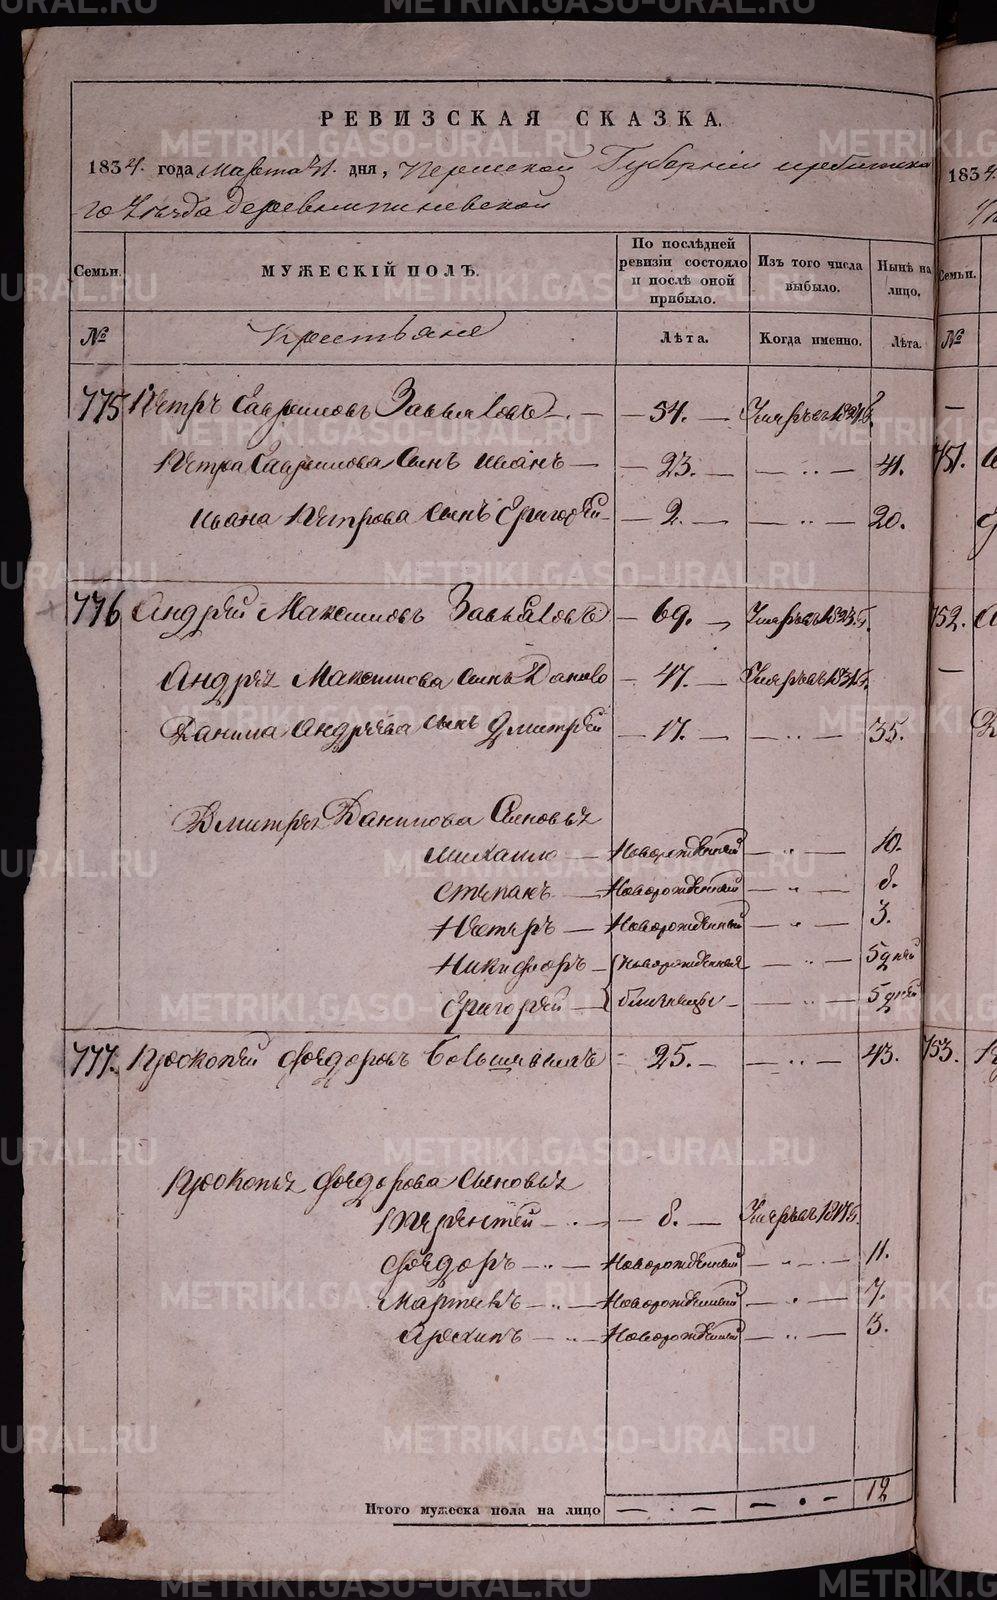 РЕВИЗСКАЯ СКАЗКА.
1834. года Марта 21. дня, Пермской Губернiи ирбитска
го Уѣзда деревни
Семьи. МУЖЕСКIЙ ПОЛЪ. По послѣдней ревизiи состояло и послѣ оной прибыло. Изъ того числа выбыло. Нынѣ на лицо.
№ Крестьяне Лѣта. Когда именно. Лѣта. №
775 Петръ Гавриловъ Завьяловъ — 54. — Умеръ въ 1821 г.
Петра Гаврилова Сынъ Иванъ — 23. — — „ — 41.
Ивана Петрова Сынъ Григорей — 2. — — „ — 20.
776 Андрей Максимовъ Завьяловъ — 69. — Умеръ въ 1823 г.
Андрея Максимова Сынъ Данило — 47. — Умеръ въ 1831 г.
Данила Андреева Сынъ Дмитрей — 17. — — „ — 35.
Дмитрея Данилова Сыновья
Михайло — Новорожденный — „ — 10.
Степанъ — Новорожденный — „ — 8.
Петръ — Новорожденный — „ — 3.
Никифоръ — Новорожденныя — „ — 5 дней
Григорей — близнецы — — „ — 5 дней
777. Прокопей Федоровъ — 25. — — „ — 43.
Прокопья Федорова Сыновья
Терентей — „ — — 8. — Умеръ въ 1817 г.
Федоръ — „ — Новорожденный — „ — 11.
Мартынъ — „ — Новорожденный — „ — 7.
Архипъ — „ — Новорожденный — „ — 3.
Итого мужеска пола на лицо — — · — — • — 12
1834.
Семьи.
№
751.
752.
753.
METRIKI.GASO-URAL.RU